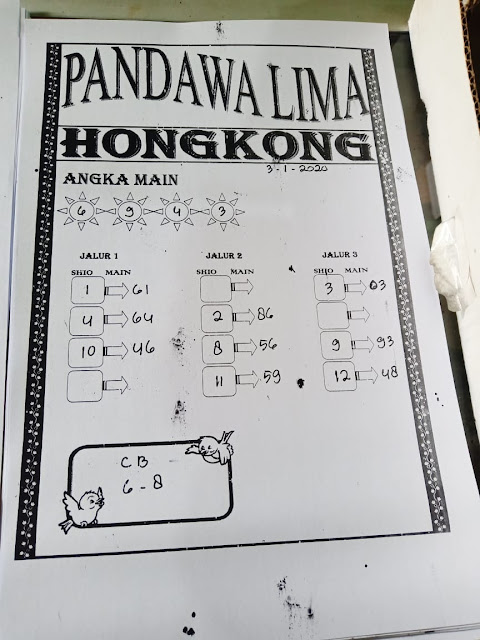 PANDAWA LIMA
HONGKONG
3-1-2020
ANGKA MAIN
6 9 4 3
JALUR 1 JALUR 2 JALUR 3
SHIO MAIN SHIO MAIN SHIO MAIN
1 61 3 03
4 64 2 86
10 46 8 56 9 93
11 59 12 48
CB
6-8